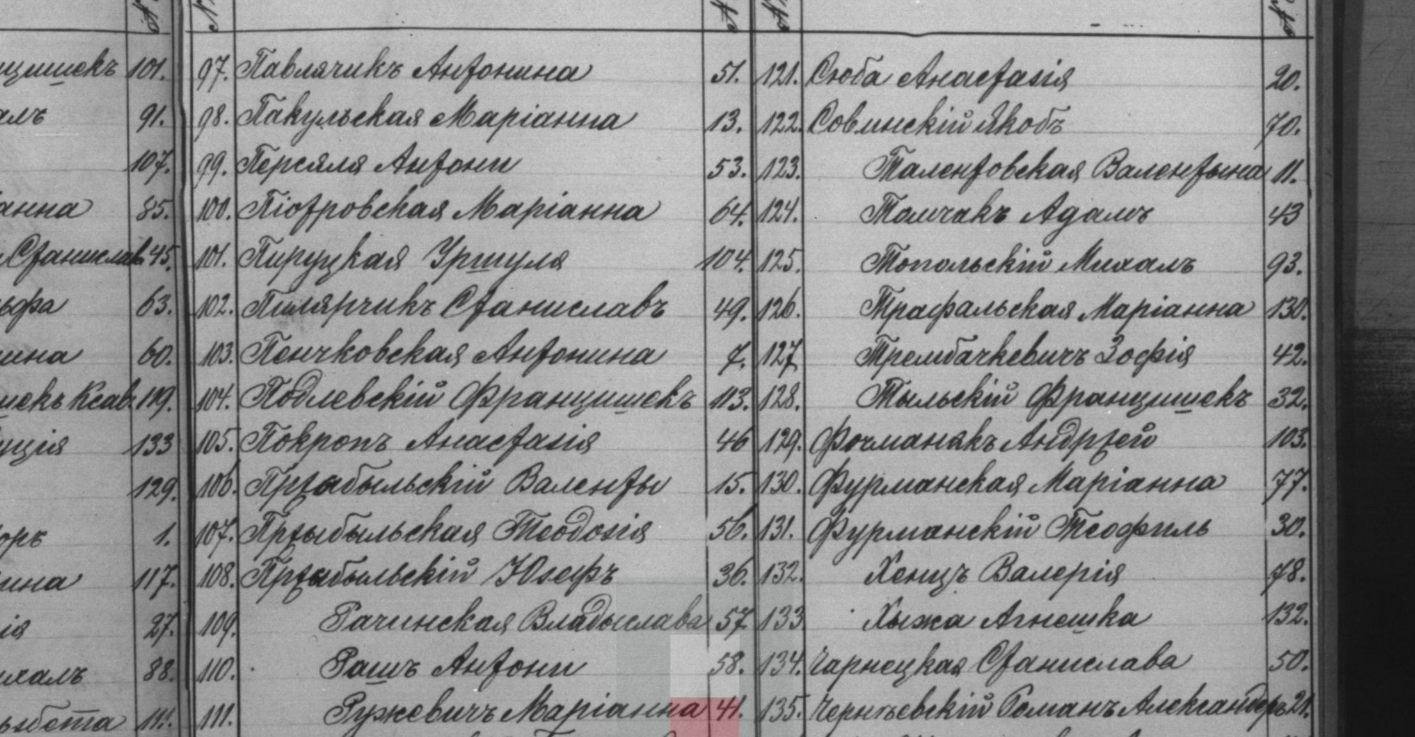 101.
91.
107.
анна 85.
Станислав. 45.
63.
60.
Ксав. 119.
133
129.
1.
117.
27.
88.
111.
97. Павлячикъ Антонина 51.
98. Пакульская Маріанна 13.
99. Персяля Антони 53.
100. Піотровская Маріанна 64.
101. Пируцкая Уршуля 104.
102. Пилярчикъ Станиславъ 49.
103. Пенчковская Антонина 7.
104. Подлевскій Францишекъ 113.
105. Покропъ Анастазія 46
106. Пржбыльскій Валенты 15.
107. Пржыбыльская Теодозія 56.
108. Пржыбыльскій Юзефъ 36.
109. Рачинская Владыслава 57
110. Рашъ Антони 58.
111. Ружевичъ Маріанна 41.
121. Сюба Анастазія 20.
122. Совинскій Якобъ 70.
123. Талентовская Валентына 11.
124. Томчакъ Адамъ 43
125. Топольскій Михалъ 93.
126. Трафальская Маріанна 130.
127 Трембачкевичъ Зофія 42.
128. Тыльскій Францишекъ 32.
129. Фочманякъ Андржей 103.
130. Фурманская Маріанна 77.
131. Фурманскій Теофиль 30.
132. Хенцъ Валерія 78.
133 Хыжа Агнешка 132.
134. Чарнецкая Станислава 50.
135. Чернѣевскій Романъ Александръ 21.